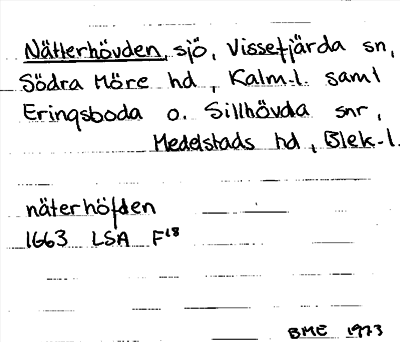 Nätterhövden, sjö, Vissefjärda sn,
Södra Möre hd, Kalm.l. samt
Eringsboda o. Sillhövda snr,
Medelstads hd, Blek.l.
näterhöfden
1663 LSA F18
BME 1973